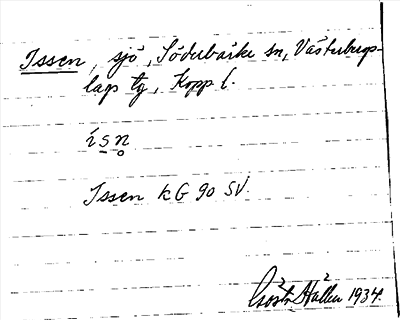 Issen, sjö, Söderbärke sn, Västerbergs-
lags tg, Kopp l.
i s n̥
Issen kG 90 SV.
Gösta Hallin 1934.